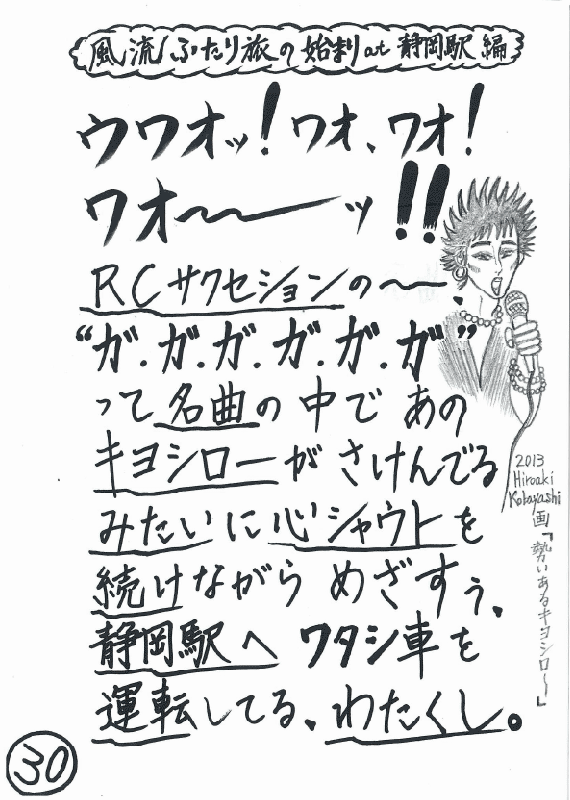 風流ふたり旅の始まりat静岡駅編
ウワオッ!ワオ、ワオ!
ワオ〜〜ーッ!!
RCサクセションの〜、
“ガ.ガ.ガ.ガ.ガ.ガ”
って名曲の中であの
キヨシローがさけんでる
みたいに心シャウトを
続けながらめざすぅ、
静岡駅へワタシ車を
運転してる、わたくし。
2013
Hiroaki
Kobayashi
画「勢いあるキヨシロ〜」
30